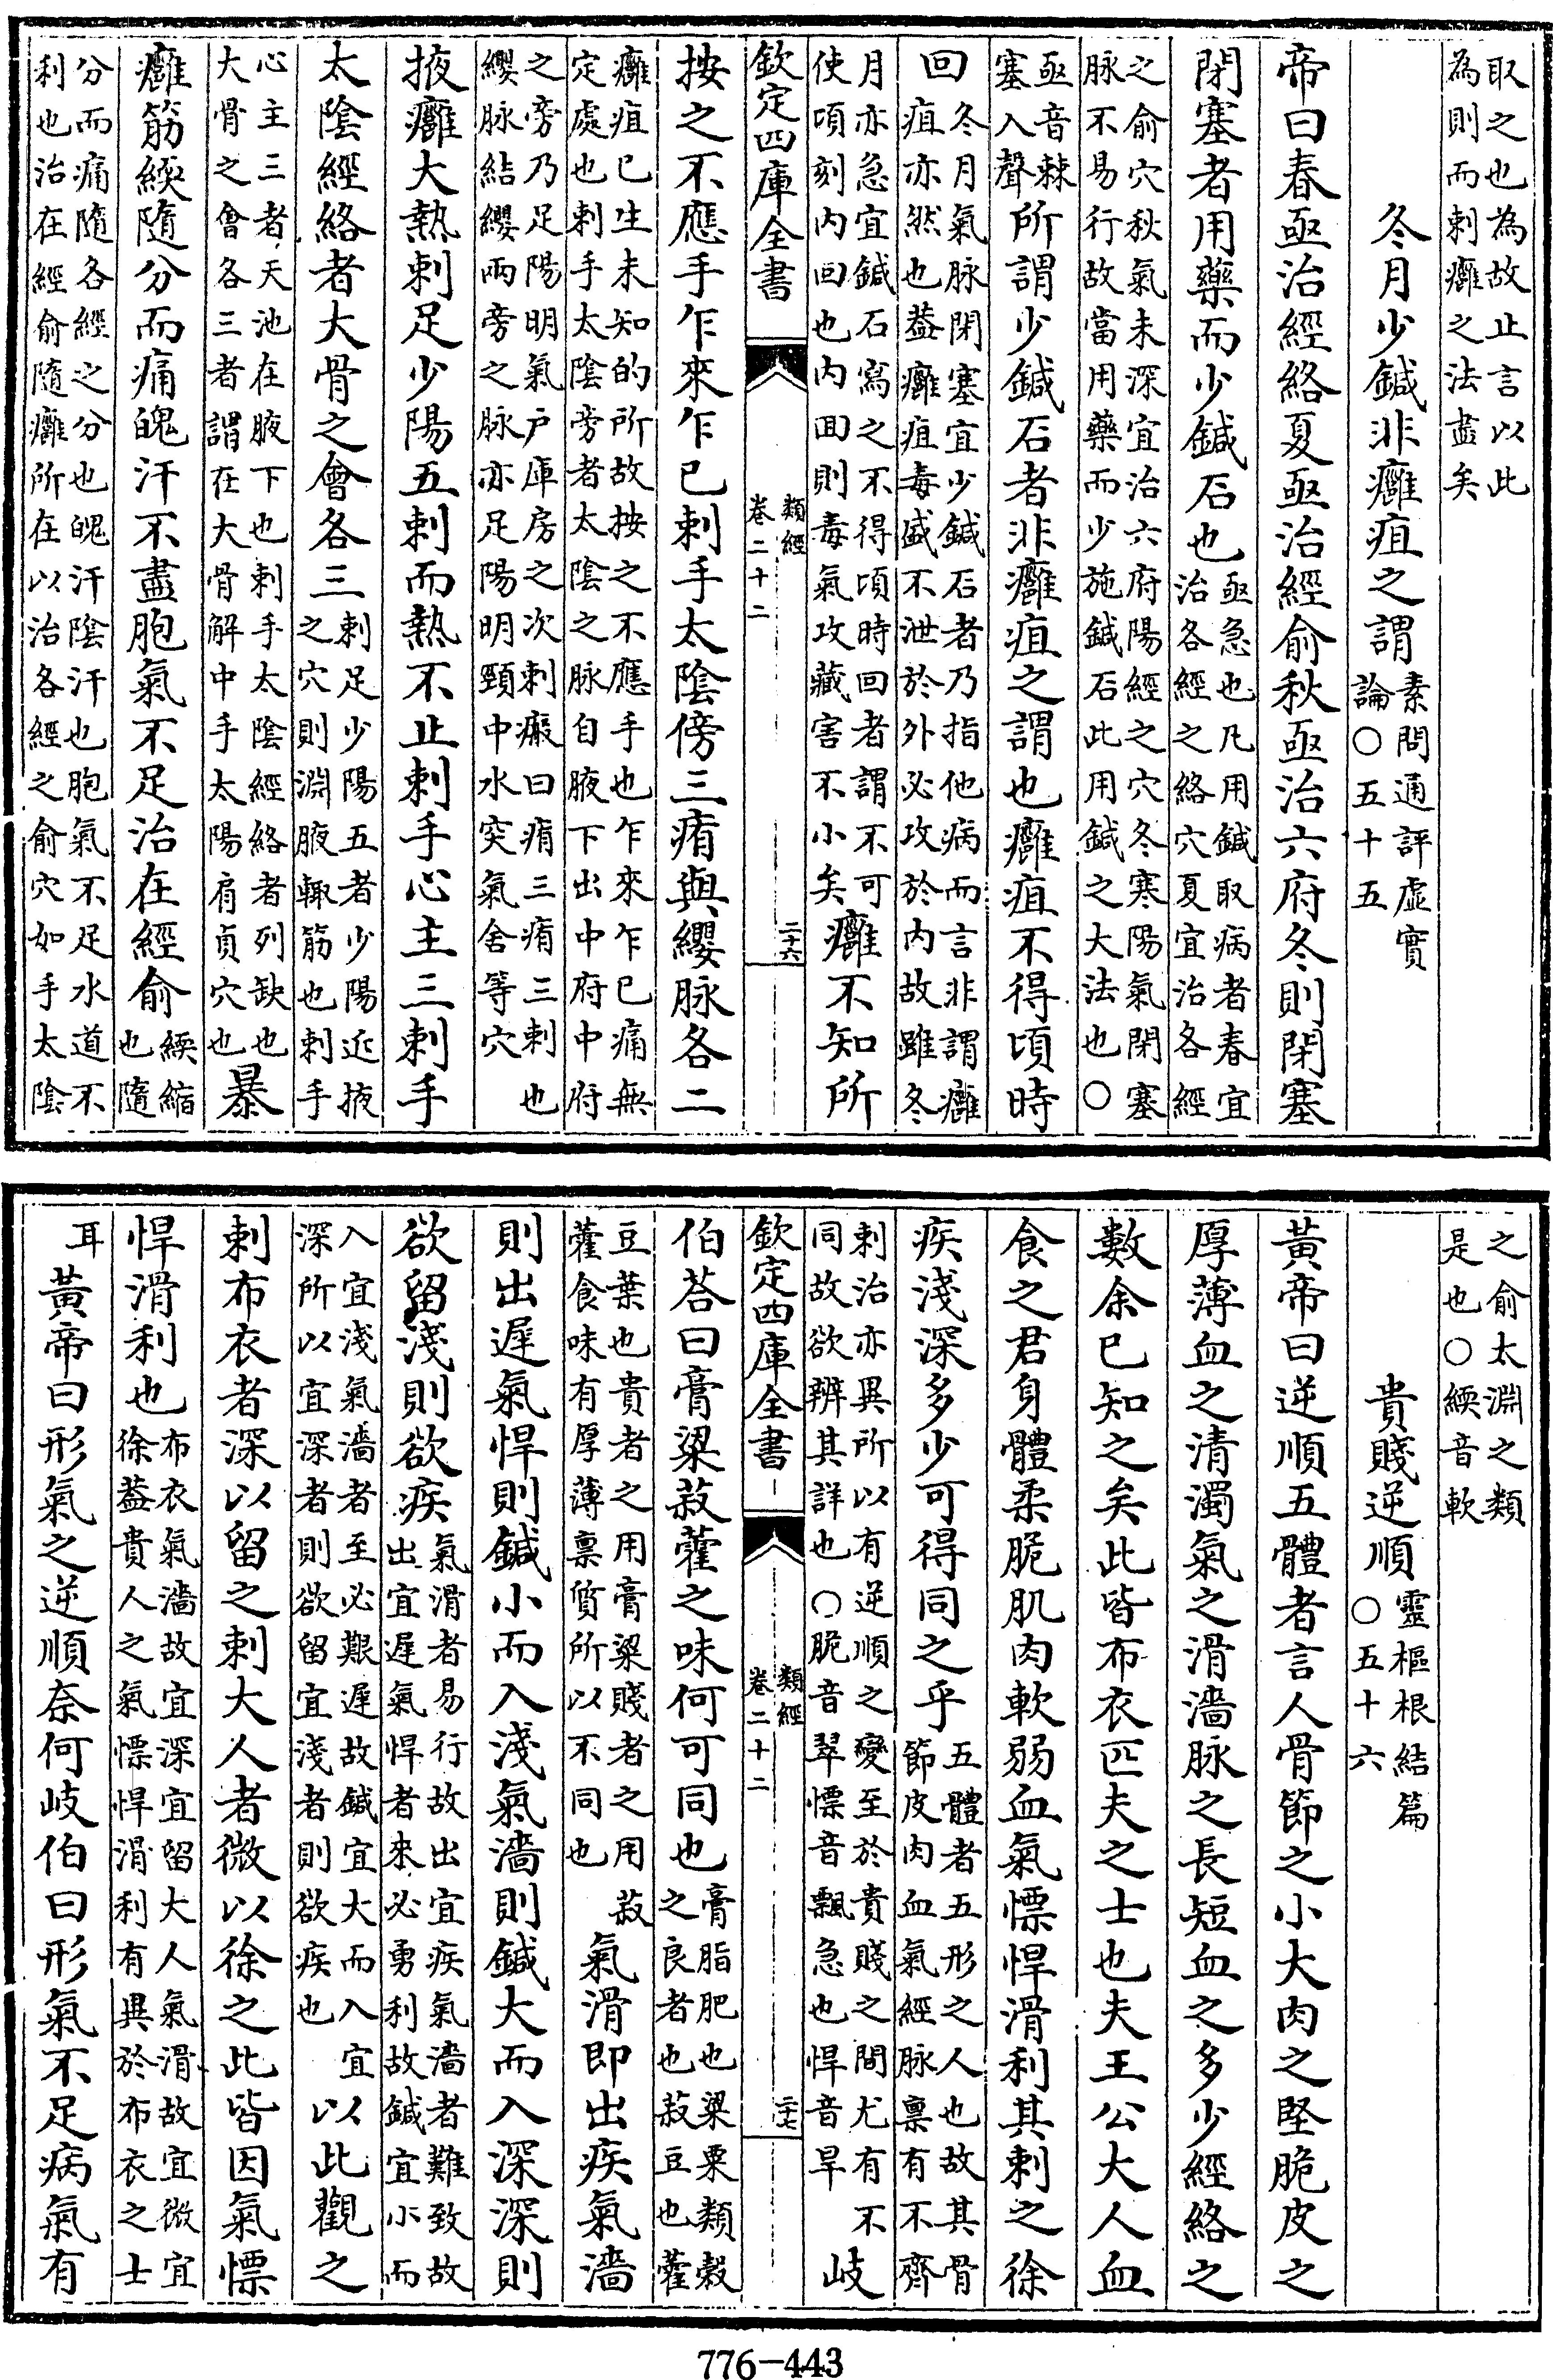 取之也為故止言以此
為則而刺癰之法盡矣
冬月少鍼非癰疽之謂素問通評虛實
論○五十五
帝曰春亟治經絡夏亟治經俞秋亟治六府冬則閉塞
閉塞者用藥而少鍼石也亟急也凡用鍼取病者春宜
治各經之絡穴夏宜治各經
之俞穴秋氣未深宜治六府陽經之穴冬寒陽氣閉塞
脉不易行故當用藥而少施鍼石此用鍼之大法也○
亟音棘
塞入聲所謂少鍼石者非癰疽之謂也癰疽不得頃時
回冬月氣脉閉塞宜少鍼石者乃指他病而言非謂癰
疽亦然也葢癰疽毒盛不泄於外必攻於内故雖冬
月亦急宜鍼石寫之不得頃時回者謂不可
使頃刻内回也内回則毒氣攻藏害不小矣癰不知所
欽定四庫全書
類經
卷二十二
二十六
按之不應手乍來乍已刺手太陰傍三痏與纓脉各二
癰疽已生未知的所故按之不應手也乍來乍已痛無
定處也刺手太陰旁者太陰之脉自腋下出中府中府
之旁乃足陽明氣户庫房之次刺瘢曰痏三痏三刺也
纓脉結纓兩旁之脉亦足陽明頸中水突氣舍等穴
掖癰大熱刺足少陽五刺而熱不止刺手心主三刺手
太陰經絡者大骨之會各三刺足少陽五者少陽近掖
之穴則淵腋輒筋也刺手
心主三者天池在腋下也刺手太陰經絡者列缺也
大骨之會各三者謂在大骨解中手太陽肩貞穴也暴
癰筋緛隨分而痛魄汗不盡胞氣不足治在經俞緛縮
也隨
分而痛隨各經之分也魄汗陰汗也胞氣不足水道不
利也治在經俞隨癰所在以治各經之俞穴如手太陰
之俞太淵之類
是也○緛音軟
貴賤逆順靈樞根結篇
○五十六
黃帝曰逆順五體者言人骨節之小大肉之堅脆皮之
厚薄血之清濁氣之滑濇脉之長短血之多少經絡之
數余已知之矣此皆布衣匹夫之士也夫王公大人血
食之君身體柔脆肌肉軟弱血氣慓悍滑利其刺之徐
疾淺深多少可得同之乎五體者五形之人也故其骨
節皮肉血氣經脉稟有不齊
刺治亦異所以有逆順之變至於貴賤之間尤有不
同故欲辨其詳也○脆音翠慓音飄急也悍音旱岐
欽定四庫全書
類經
卷二十二
二十七
伯荅曰膏粱菽藿之味何可同也膏脂肥也粱粟類穀
之良者也菽豆也藿
豆葉也貴者之用膏粱賤者之用菽
藿食味有厚薄稟質所以不同也氣滑即出疾氣濇
則出遲氣悍則鍼小而入淺氣濇則鍼大而入深深則
欲留淺則欲疾氣滑者易行故出宜疾氣濇者難致故
出宜遲氣悍者來必勇利故鍼宜小而
入宜淺氣濇者至必艱遲故鍼宜大而入宜
深所以宜深者則欲留宜淺者則欲疾也以此觀之
刺布衣者深以留之刺大人者微以徐之此皆因氣慓
悍滑利也布衣氣濇故宜深宜留大人氣滑故宜微宜
徐葢貴人之氣慓悍滑利有異於布衣之士
耳黃帝曰形氣之逆順奈何岐伯曰形氣不足病氣有
776-443